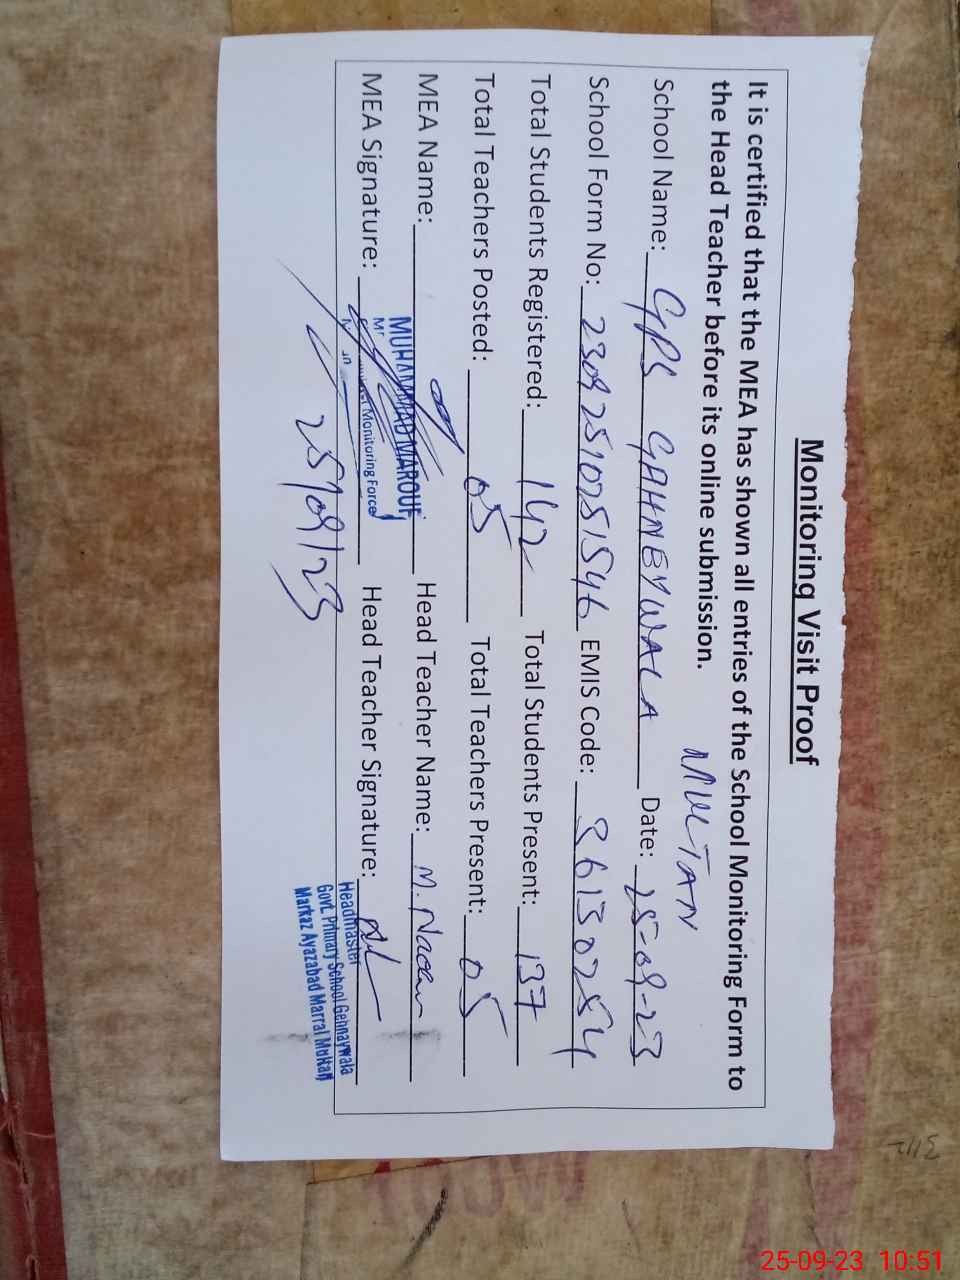 Monitoring Visit Proof
It is certified that the MEA has shown all entries of the School Monitoring Form to
the Head Teacher before its online submission.
MULTAN
School Name: GPS GAHNEYWALA Date: 25-09-23
School Form No: 23092510251546 EMIS Code: 36130254
Total Students Registered: 142 Total Students Present: 137
Total Teachers Posted: 05 Total Teachers Present: 05
MEA Name: MUHAMMAD MAROUF Head Teacher Name: M. Naeem
Monitoring Force
MEA Signature: Head Teacher Signature:
25/09/23
Headmaster
Govt. Primary School Gehnaywala
Markaz Ayazabad Marral Multan
25-09-23 10:51